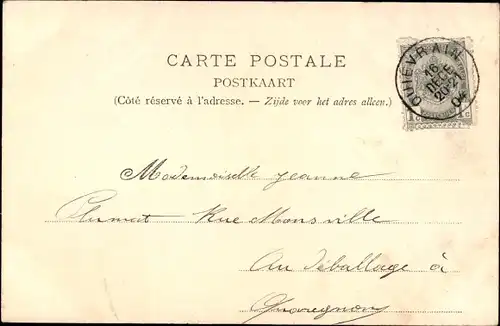 CARTE POSTALE
POSTKAART
(Côté réservé à l'adresse. — Zijde voor het adres alleen.)
QUIÉVRAIN
16
DECE
20-21
04
1 c 1 c
Mademoiselle Jeanne
Plumat Rue Monsville
Au déballage à
Quaregnon